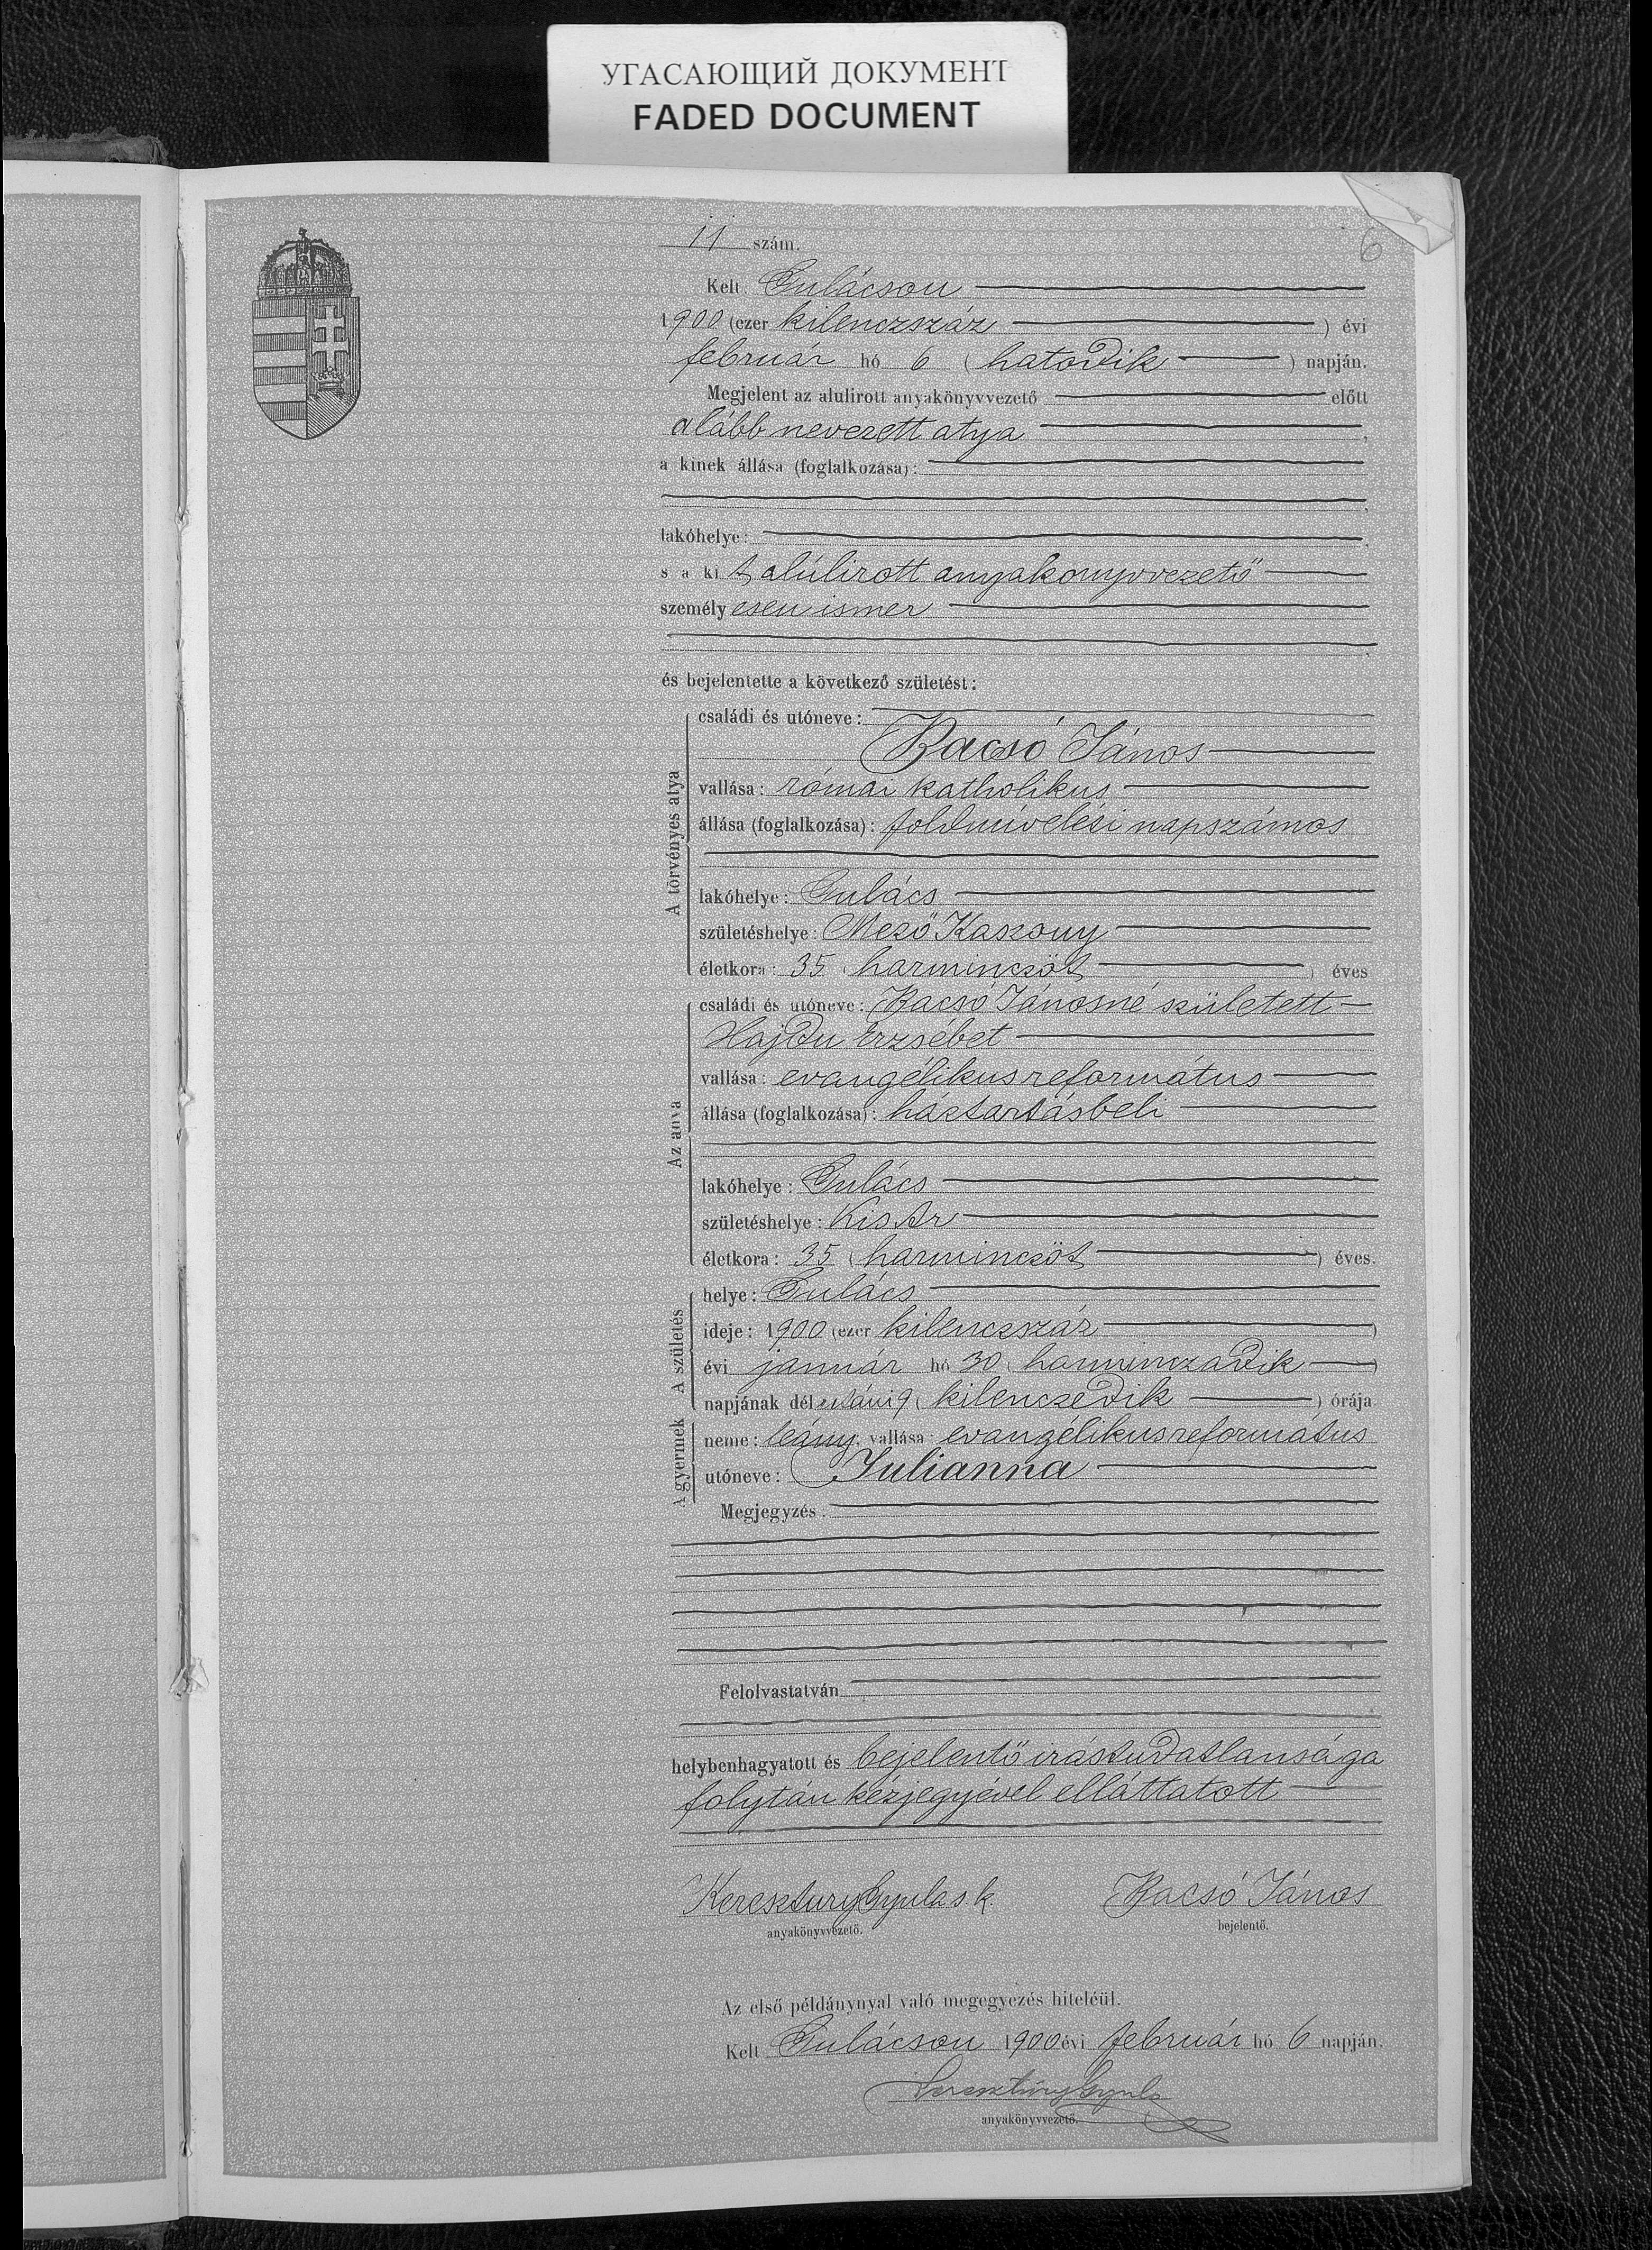 УГАСАЮЩИЙ ДОКУМЕНТ
FADED DOCUMENT
6
11 szám.
Kelt Gulácson
1900 (ezer kilenczszáz ) évi
február hó 6 (hatodik ) napján.
Megjelent az alulirott anyakönyvvezető előtt
alább nevezett atya
a kinek állása (foglalkozása):
lakóhelye:
s a kit alúlirott anyakönyvvezető
személyesen ismer
és bejelentette a következő születést:
A törvényes atya
családi és utóneve:
Bacsó János
vallása: római katholikus
állása (foglalkozása): földmivelési napszámos
lakóhelye: Gulács
születéshelye: Mező Kaszony
életkora: 35 (harminczöt ) éves
Az anya
családi és utóneve: Bacsó Jánosné született
Hajdu Erzsébet
vallása: evangélikus református
állása (foglalkozása): háztartásbeli
lakóhelye: Gulács
születéshelye: Kis Ar
életkora: 35 (harminczöt ) éves.
A születés
helye: Gulács
ideje: 1900 (ezer kilenczszáz )
évi január hó 30 (harminczadik )
napjának délutáni 9 (kilenczedik ) órája
A gyermek
neme: leány; vallása: evangélikus református
utóneve: Julianna
Megjegyzés:
Felolvastatván
helybenhagyatott és bejelentő irástudatlansága
folytán kézjegyével elláttatott
Keresztury Gyula s. k. Bacsó János
anyakönyvvezető. bejelentő.
Az első példánynyal való megegyezés hiteléül.
Kelt Gulácson 1900 évi február hó 6 napján.
Keresztury Gyula
anyakönyvvezető.